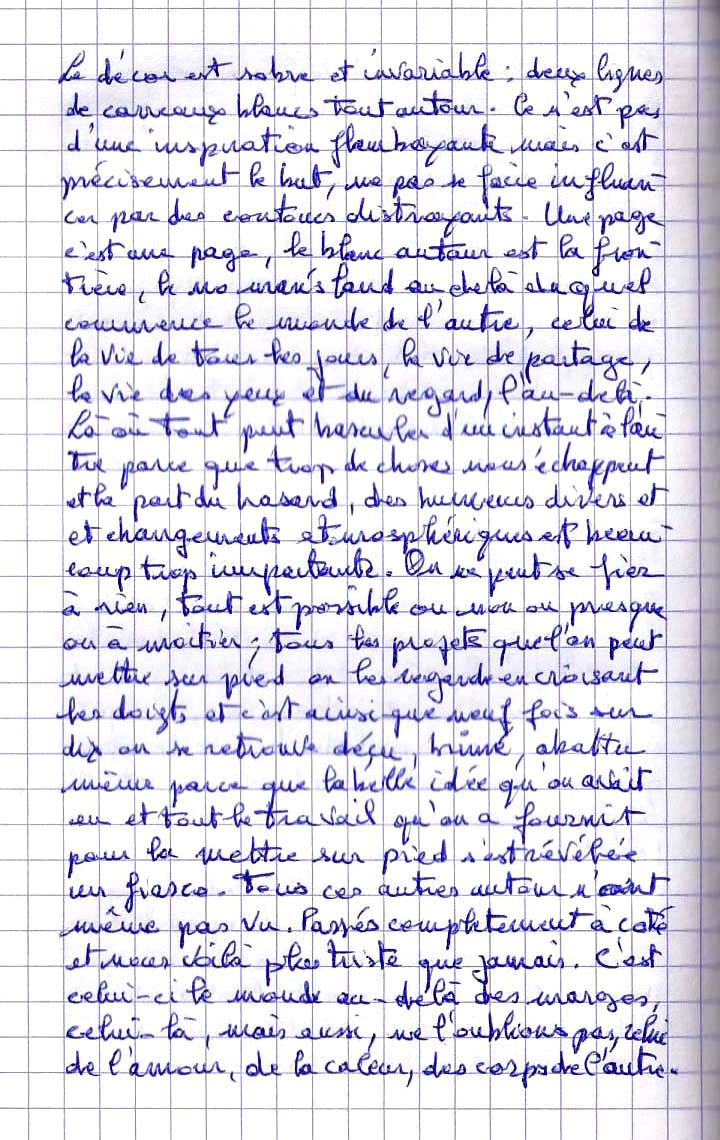 Le décor est sobre et invariable : deux lignes
de carreaux blancs tout autour. Ce n'est pas
d'une inspiration flamboyante mais c'est
précisement le but, ne pas se facie influen-
cer par des contours distrayants. Une page
c'est une page, le blanc autour est la fron-
tière, le no man's land au delà duquel
commence le monde de l'autre, celui de
la vie de tous les jours, la vie de partage,
la vie des yeux et du regard, l'au-delà.
Là où tout peut basculer d'un instant à l'au-
tre parce que trop de choses nous échappent
et la part du hasard, des humeurs divers et
et changements atmosphériques est beau-
coup trop importante. On ne peut se fier
à rien, tout est possible ou non ou presque
ou à moitier ; tous les projets que l'on peut
mettre sur pied on les regarde en croisant
les doigts et c'est ainsi que neuf fois sur
dix on se retrouve déçu, brimé, abattu
même parce que la belle idée qu'on avait
eu et tout le travail qu'on a fournit
pour la mettre sur pied s'est révélée
un fiasco. Tous ces autres autour n'ont
même pas vu. Passés complètement à coté
et nous voilà plus triste que jamais. C'est
celui-ci le monde au-delà des marges,
celui-là, mais aussi, ne l'oublions pas, celui
de l'amour, de la caleur, des corps de l'autre.